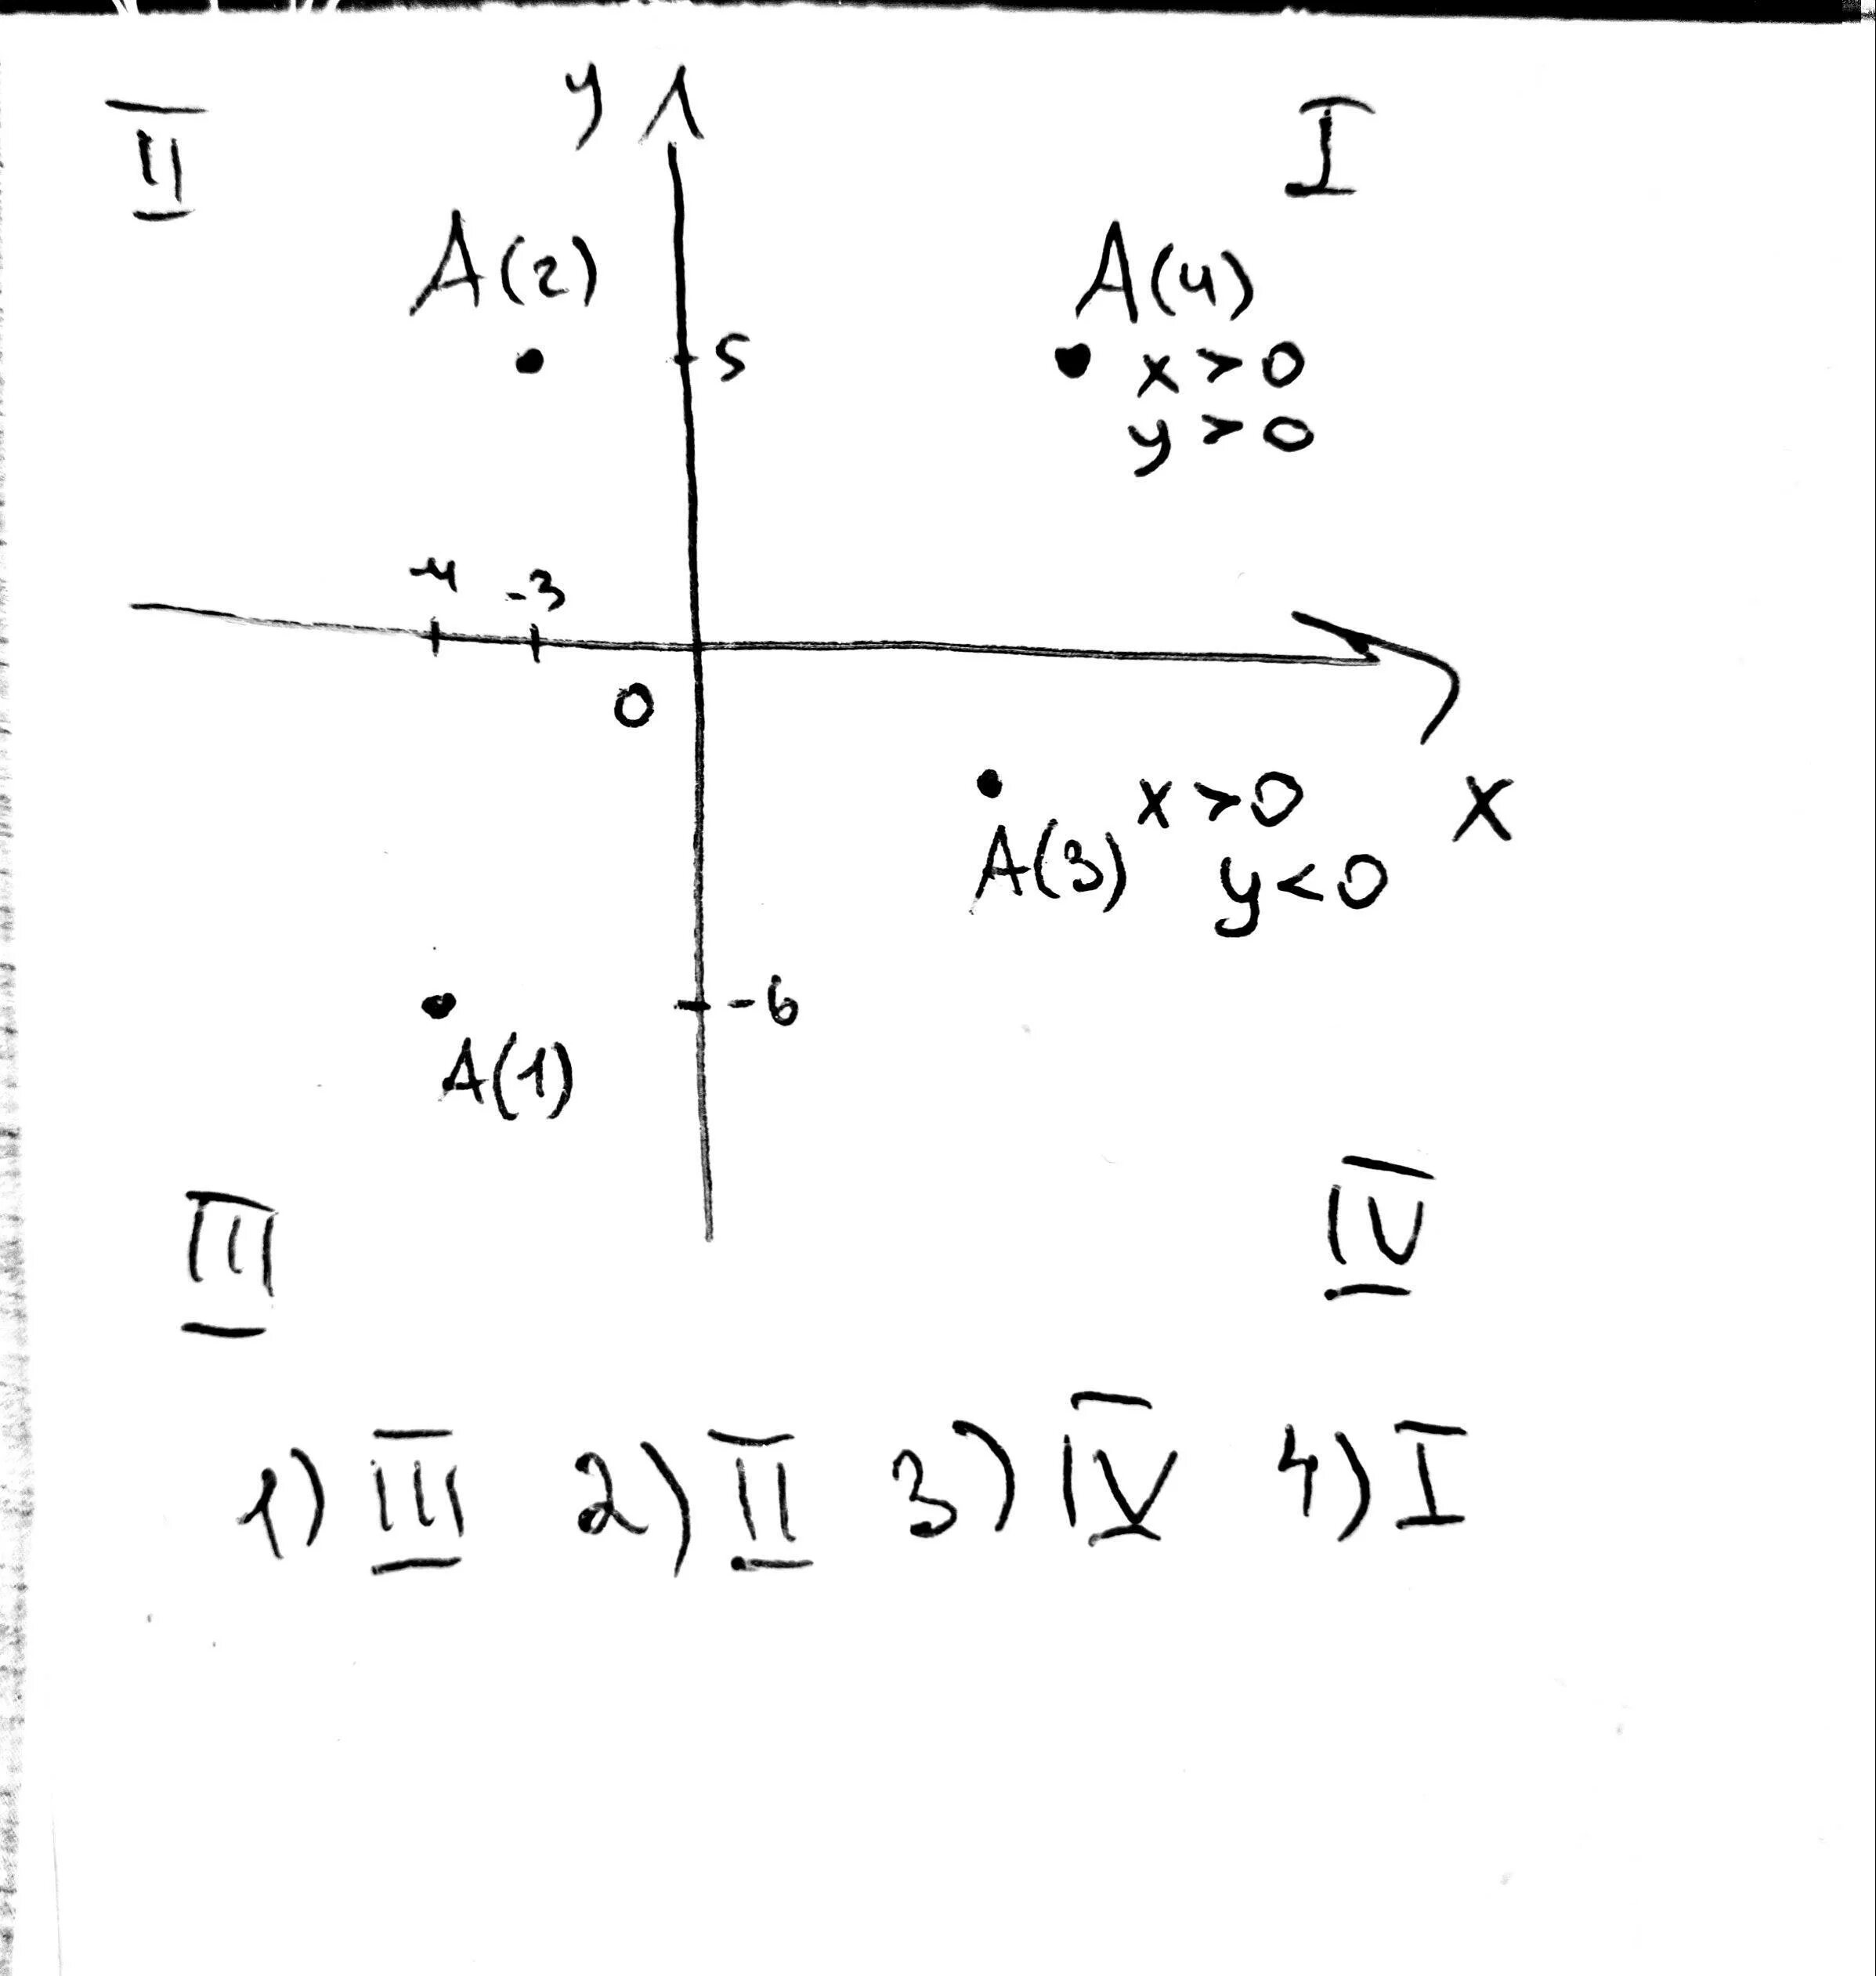 y
II I
A(2) A(4)
5 x > 0
y > 0
-4 -3
0
x > 0 x
A(3) y < 0
-6
A(1)
III IV
1) III 2) II 3) IV 4) I